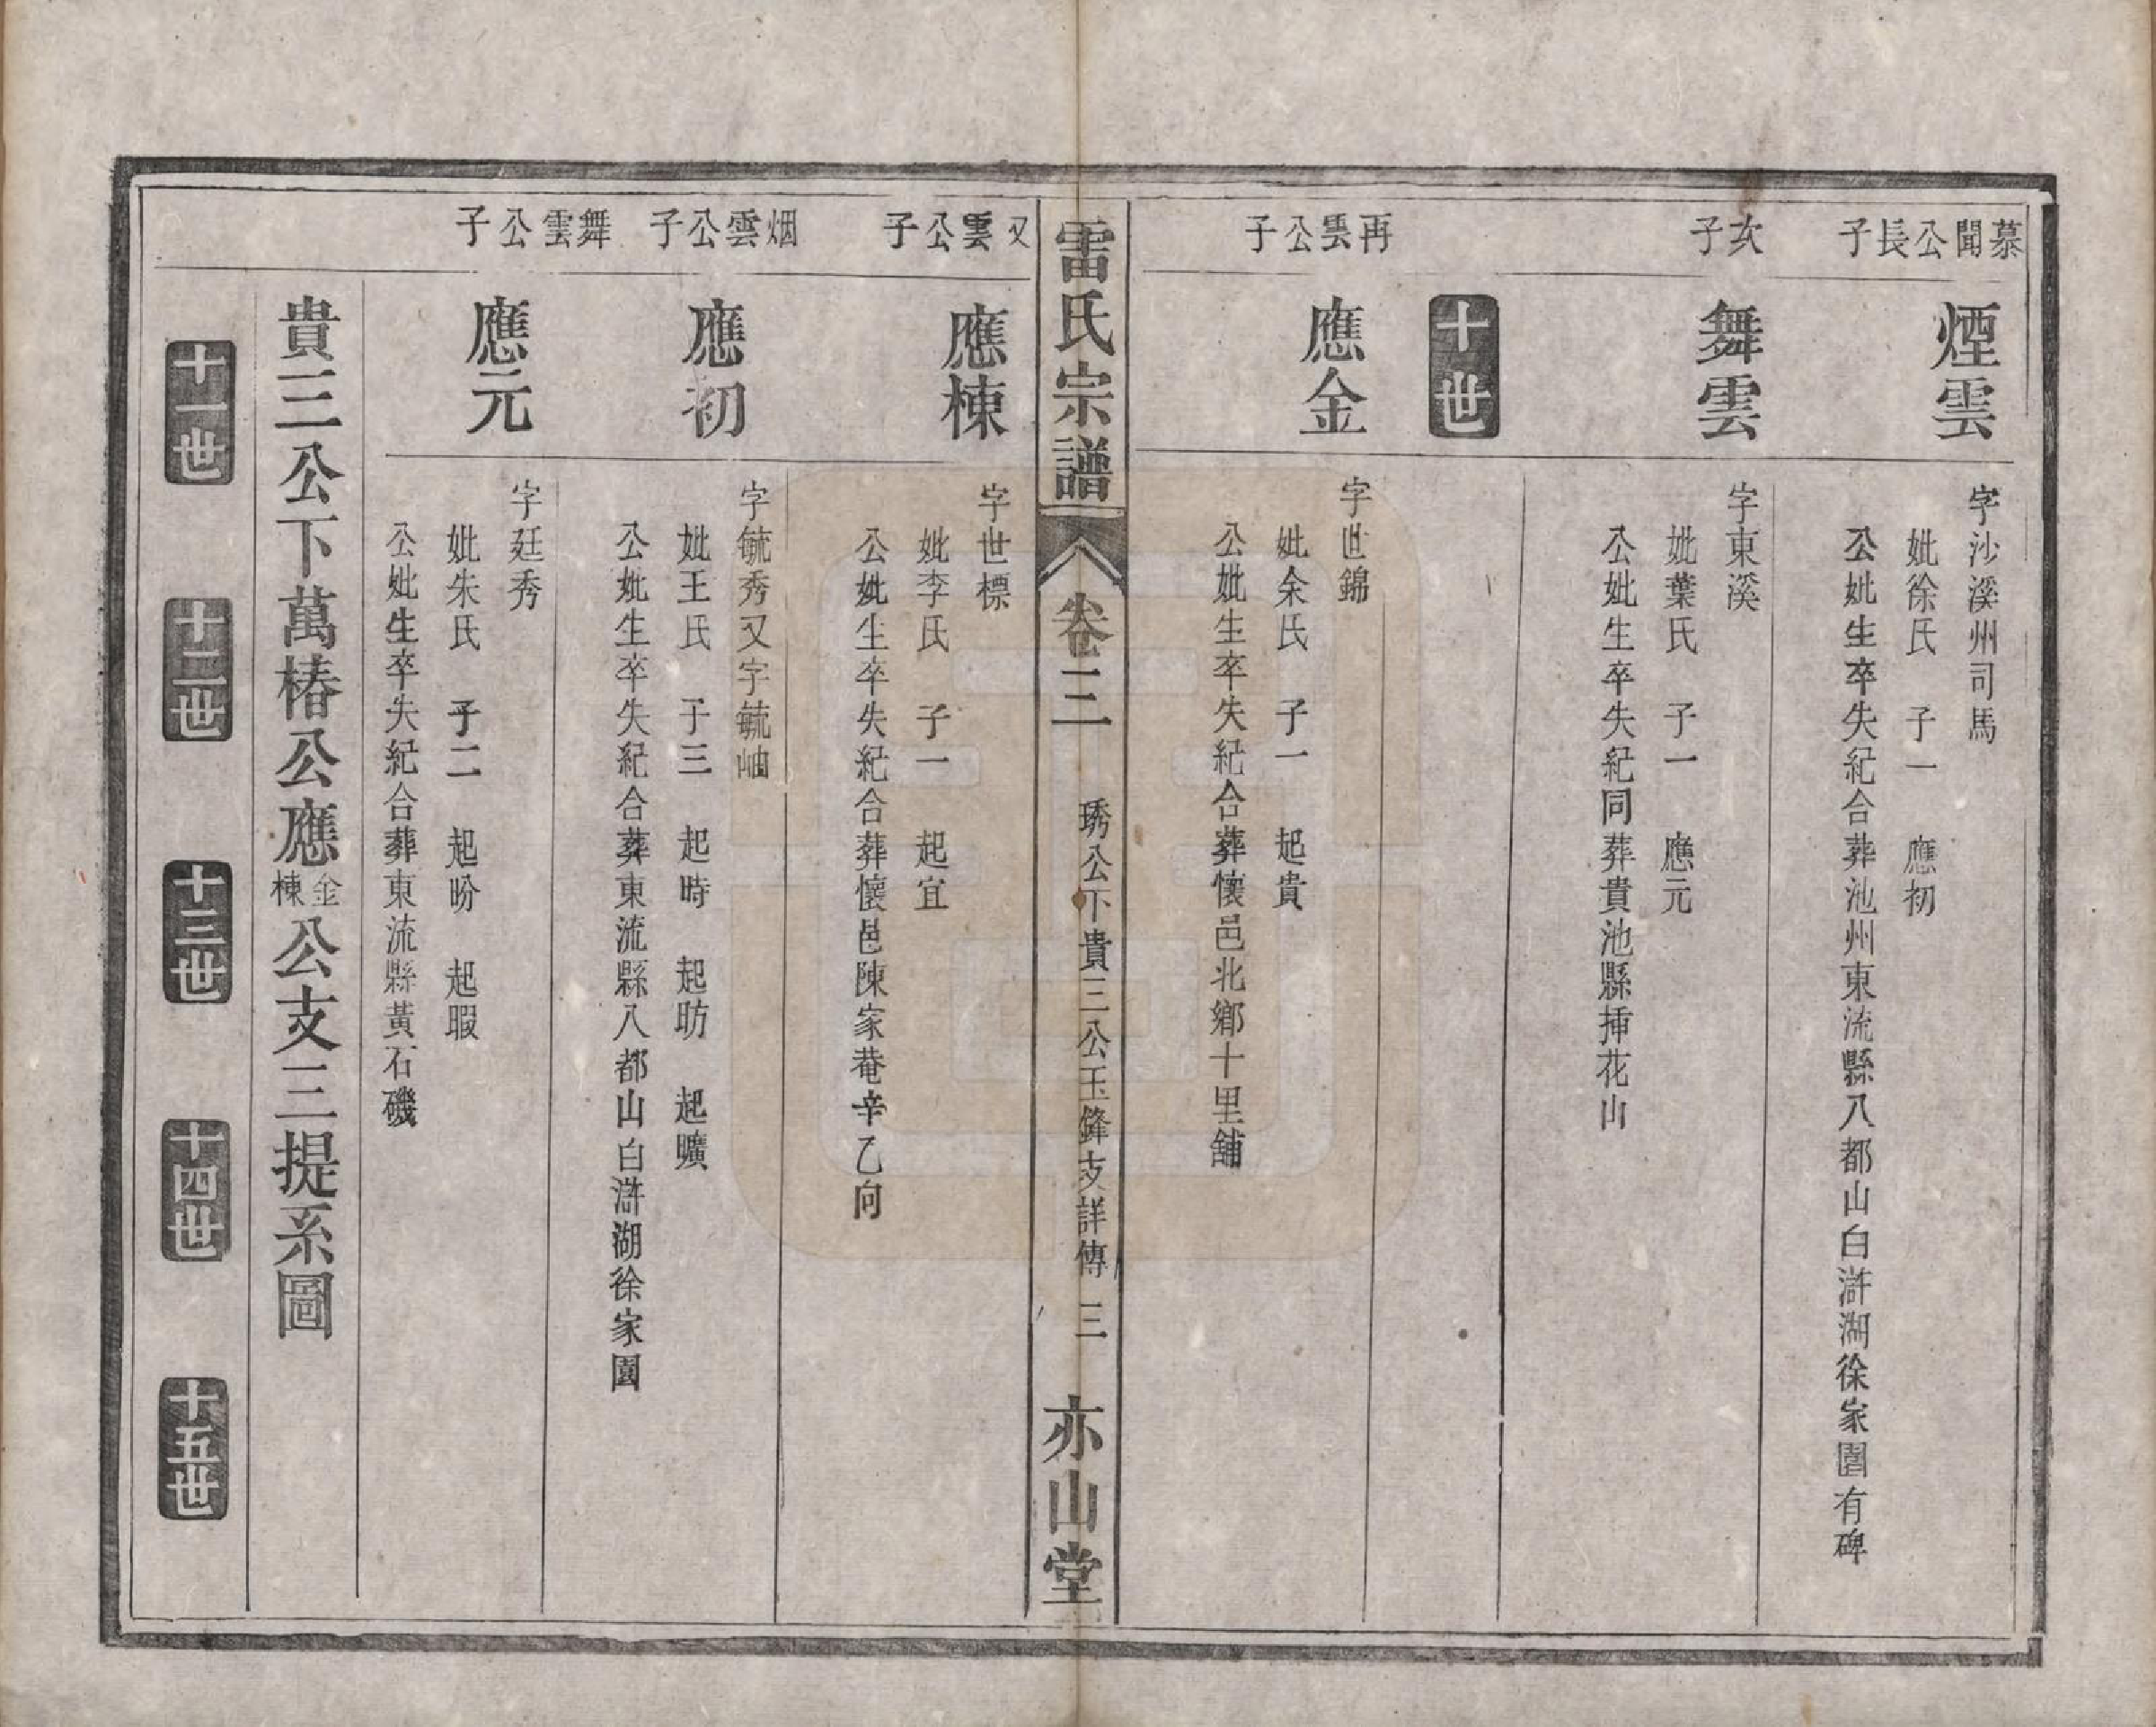 慕聞公長子
煙雲
字沙溪州司馬
妣徐氏　子一　應初
公妣生卒失紀合葬池州東流縣八都山白滸湖徐家園有碑
次子
舞雲
字東溪
妣葉氏　子一　應元
公妣生卒失紀同葬貴池縣挿花山
十世
再雲公子
應金
字世錦
妣余氏　子一　起貴
公妣生卒失紀合葬懷邑北鄉十里舖
雷氏宗譜　卷三　琇公下貴三公玉鋒支詳傳　三　亦山堂
又雲公子
應棟
字世標
妣李氏　子一　起宜
公妣生卒失紀合葬懷邑陳家菴辛乙向
烟雲公子
應初
字毓秀又字毓岫
妣王氏　子三　起時　起昉　起曠
公妣生卒失紀合葬東流縣八都山白滸湖徐家園
舞雲公子
應元
字廷秀
妣朱氏　子二　起昐　起暇
公妣生卒失紀合葬東流縣黃石磯
貴三公下萬椿公應金棟公支三提系圖
十一世　十二世　十三世　十四世　十五世